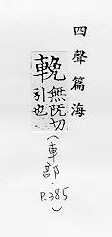 四聲篇海
輓 無阮切
引也
(車部. P.385)